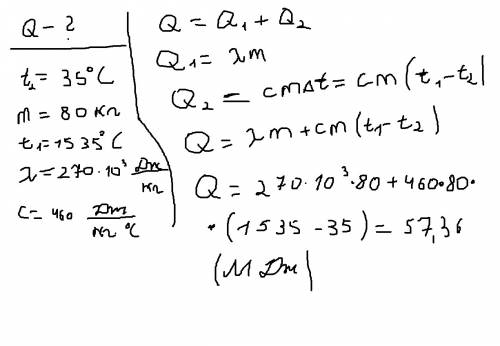 Q - ?
t₂ = 35°C
m = 80 кг
t₁ = 1535°C
λ = 270·10³ Дж/кг
c = 460 Дж/кг °C
Q = Q₁ + Q₂
Q₁ = λm
Q₂ = cmΔt = cm(t₁-t₂)
Q = λm + cm(t₁-t₂)
Q = 270·10³·80 + 460·80·
·(1535 - 35) = 57,36
(МДж)